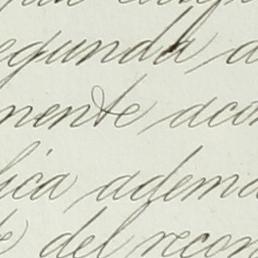 segunda a
mente acom
lica adema
e del recon